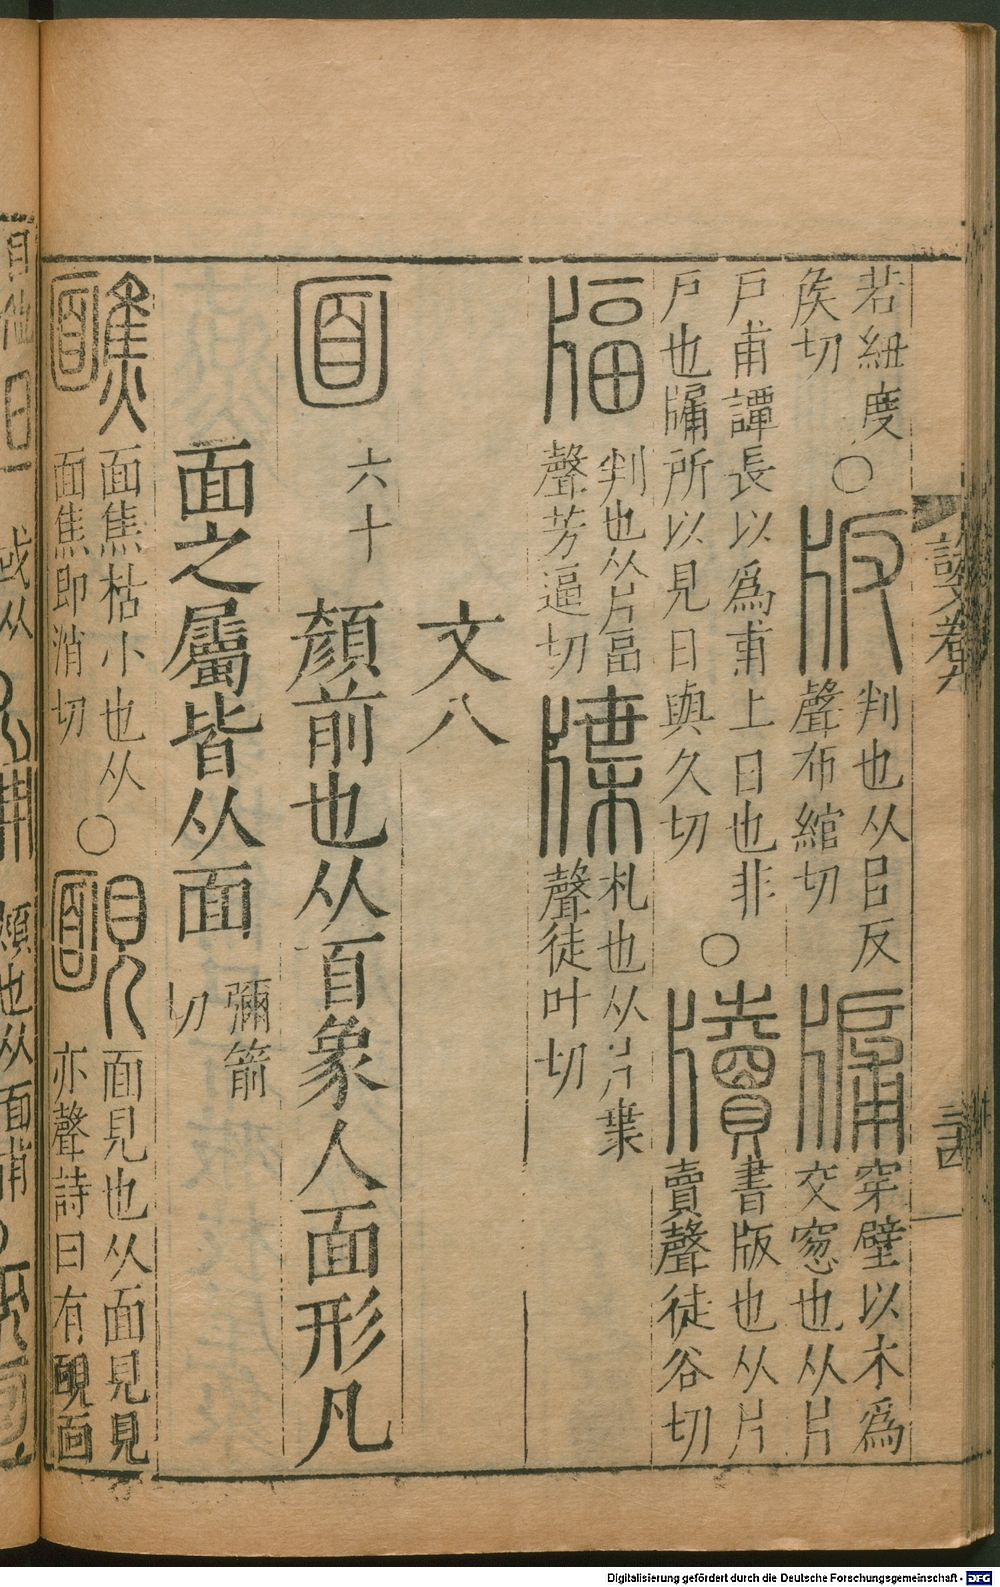 若紐度〇版判也从片反
矦切
聲布綰切
牖穿壁以木爲
交窻也从片
戶甫譚長以爲甫上日也非
戶也牖所以見日與久切
〇牘書版也从片
賣聲徒谷切
副判也从片畐
聲芳逼切
牒札也从片枼
聲徒叶切
文八
六十
面顏前也从𦣻象人面形凡
面之屬皆从面
彌箭
切
面焦枯小也从
面焦即消切
〇靦面見也从面見見
亦聲詩曰有靦面
說文卷九
三四
頮也从面甫
或从
Digitalisierung gefördert durch die Deutsche Forschungsgemeinschaft - DFG